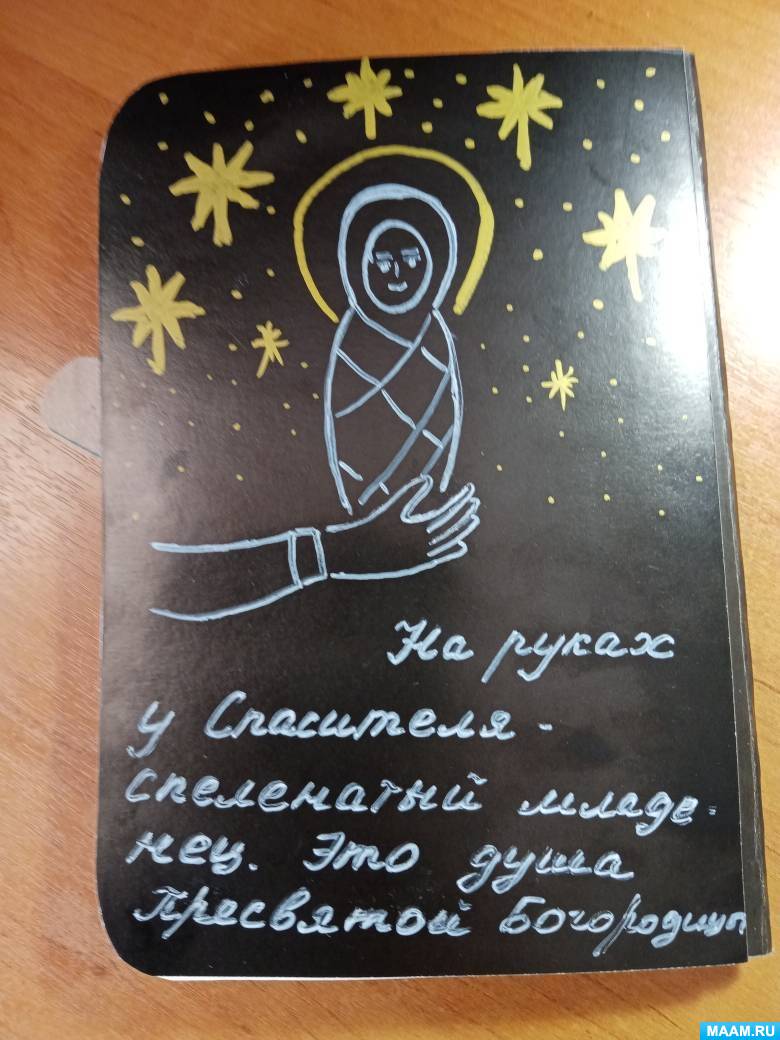 На руках
у Спасителя -
спеленатый младе-
нец. Это душа
Пресвятой Богородицы
MAAM.RU